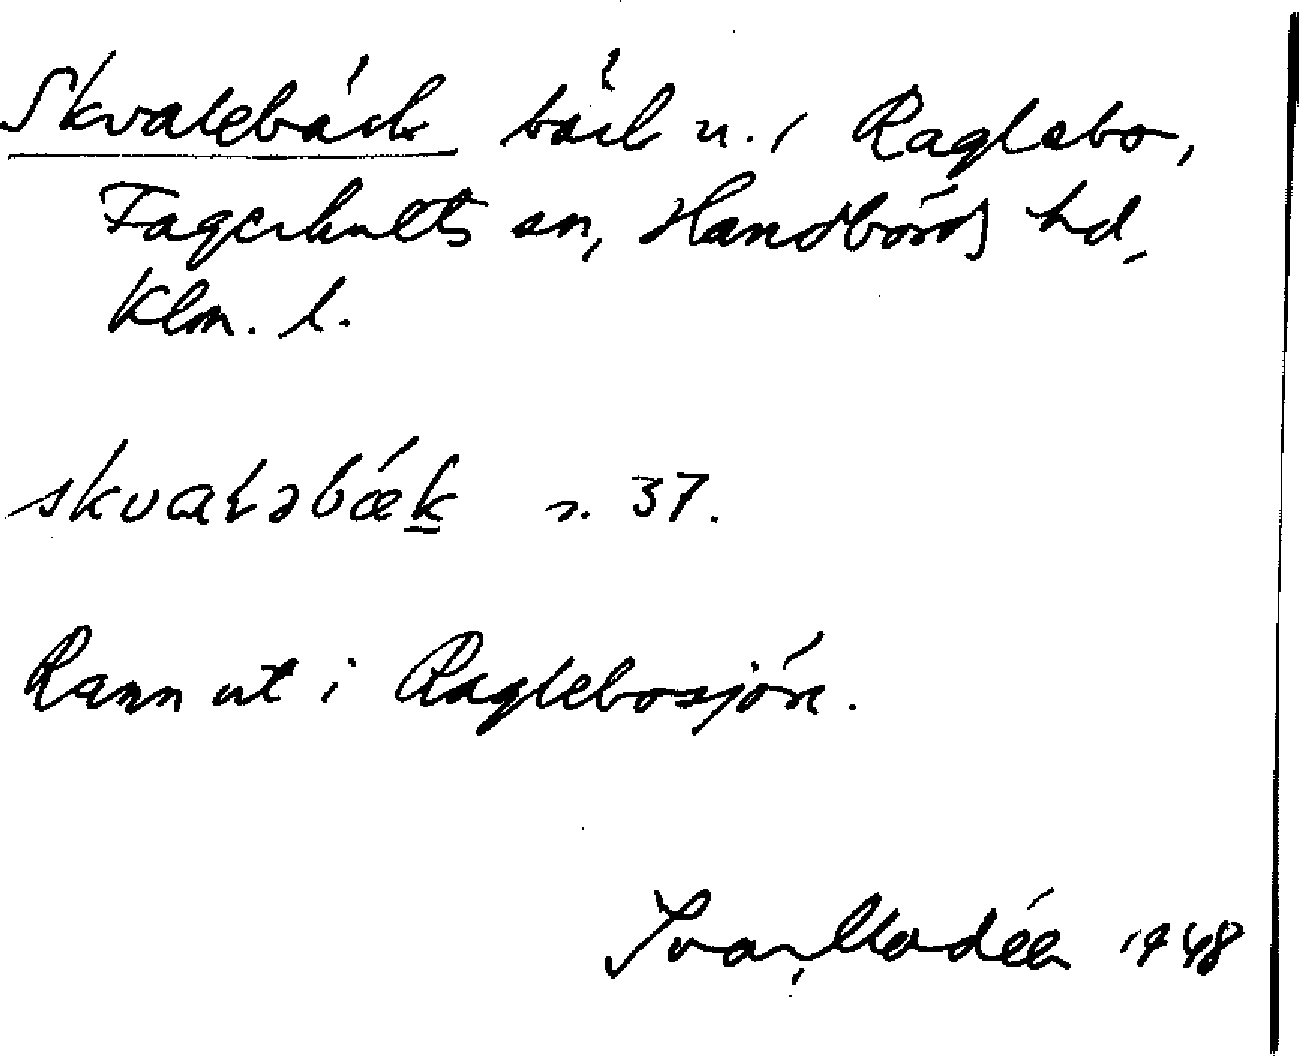 Skvalebäck bäck n. i Raglebo,
Fagerhults sn, Handbörds hd,
Klm. l.
skvaləbæk s. 37.
Rann ut i Raglebosjön.
Ivar Modéer 1948